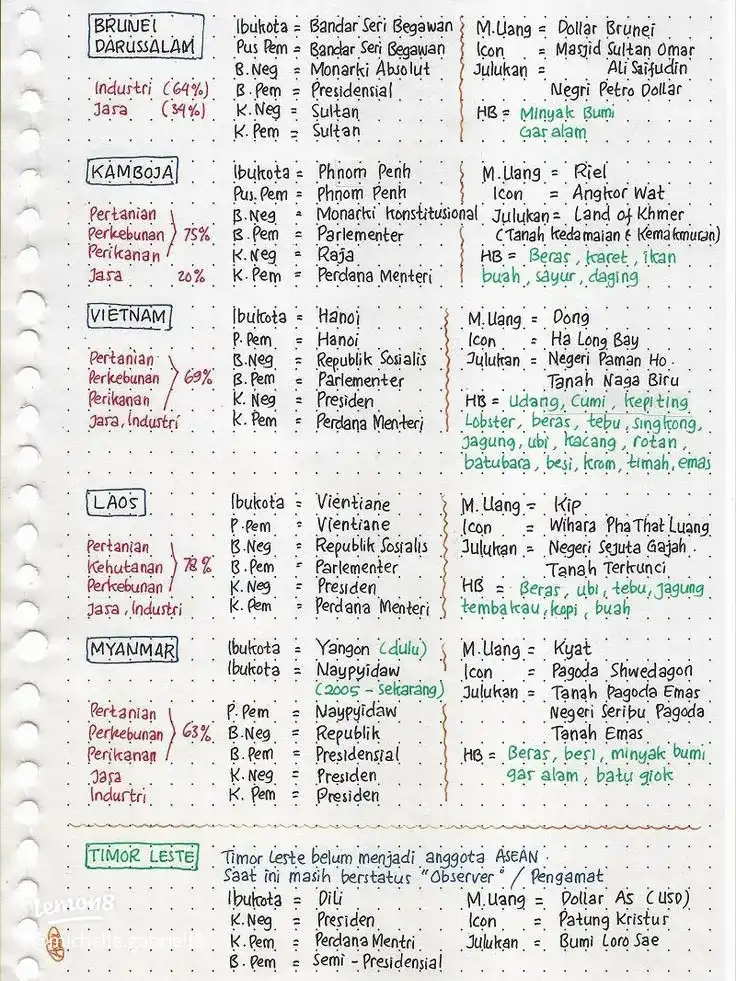 BRUNEI DARUSSALAM
Industri (64%)
Jasa (34%)
Ibukota = Bandar Seri Begawan
Pus Pem = Bandar Seri Begawan
B.Neg = Monarki Absolut
B.Pem = Presidensial
K.Neg = Sultan
K.Pem = Sultan
M.Uang = Dollar Brunei
Icon = Masjid Sultan Omar
Julukan = Ali Saifudin
Negri Petro Dollar
HB = Minyak Bumi
Gas alam
KAMBOJA
Pertanian
Perkebunan 75%
Perikanan
Jasa 20%
Ibukota = Phnom Penh
Pus.Pem = Phnom Penh
B.Neg = Monarki konstitusional
B.Pem = Parlementer
K.Neg = Raja
K.Pem = Perdana Menteri
M.Uang = Riel
Icon = Angkor Wat
Julukan = Land of Khmer
(Tanah Kedamaian & Kemakmuran)
HB = Beras, karet, ikan
buah, sayur, daging
VIETNAM
Pertanian
Perkebunan 69%
Perikanan
Jasa, Industri
Ibukota = Hanoi
P.Pem = Hanoi
B.Neg = Republik Sosialis
B.Pem = Parlementer
K.Neg = Presiden
K.Pem = Perdana Menteri
M.Uang = Dong
Icon = Ha Long Bay
Julukan = Negeri Paman Ho.
Tanah Naga Biru
HB = Udang, Cumi, kepiting
Lobster, beras, tebu, singkong,
jagung, ubi, kacang, rotan,
batubara, besi, krom, timah, emas
LAOS
Pertanian
Kehutanan 78%
Perkebunan
Jasa, Industri
Ibukota = Vientiane
P.Pem = Vientiane
B.Neg = Republik Sosialis
B.Pem = Parlementer
K.Neg = Presiden
K.Pem = Perdana Menteri
M.Uang = Kip
Icon = Wihara Pha That Luang
Julukan = Negeri Sejuta Gajah.
Tanah Terkunci
HB = Beras, ubi, tebu, jagung
tembakau, kopi, buah
MYANMAR
Pertanian
Perkebunan 63%
Perikanan
Jasa
Industri
Ibukota = Yangon (dulu)
Ibukota = Naypyidaw
(2005 - sekarang)
P.Pem = Naypyidaw
B.Neg = Republik
B.Pem = Presidensial
K.Neg = Presiden
K.Pem = Presiden
M.Uang = Kyat
Icon = Pagoda Shwedagon
Julukan = Tanah Pagoda Emas
Negeri Seribu Pagoda
Tanah Emas
HB = Beras, besi, minyak bumi
gas alam, batu giok
TIMOR LESTE
Timor Leste belum menjadi anggota ASEAN.
Saat ini masih berstatus "Observer" / Pengamat
Ibukota = Dili
K.Neg = Presiden
K.Pem = Perdana Mentri
B.Pem = Semi-Presidensial
M.Uang = Dollar AS (USD)
Icon = Patung Kristus
Julukan = Bumi Loro Sae
Lemon8